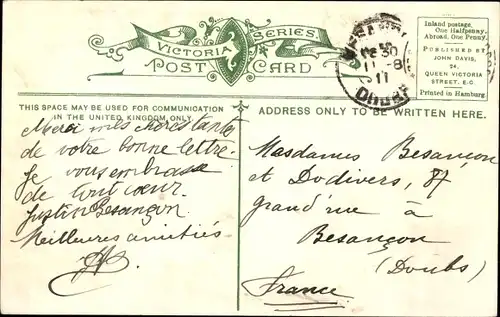 VICTORIA SERIES.
POST CARD
Inland postage,
One Halfpenny.
Abroad, One Penny.
PUBLISHED BY
JOHN DAVIS,
24,
QUEEN VICTORIA
STREET. E.C.
Printed in Hamburg.
11-8
11
THIS SPACE MAY BE USED FOR COMMUNICATION
IN THE UNITED KINGDOM ONLY.
ADDRESS ONLY TO BE WRITTEN HERE.
Merci mes chères tantes
de votre bonne lettre.
Je vous embrasse
de tout cœur
Justin Besançon
Meilleures amitiés
Mesdames Besançon
et Dodivers, 87
grand'rue à
Besançon
(Doubs)
France